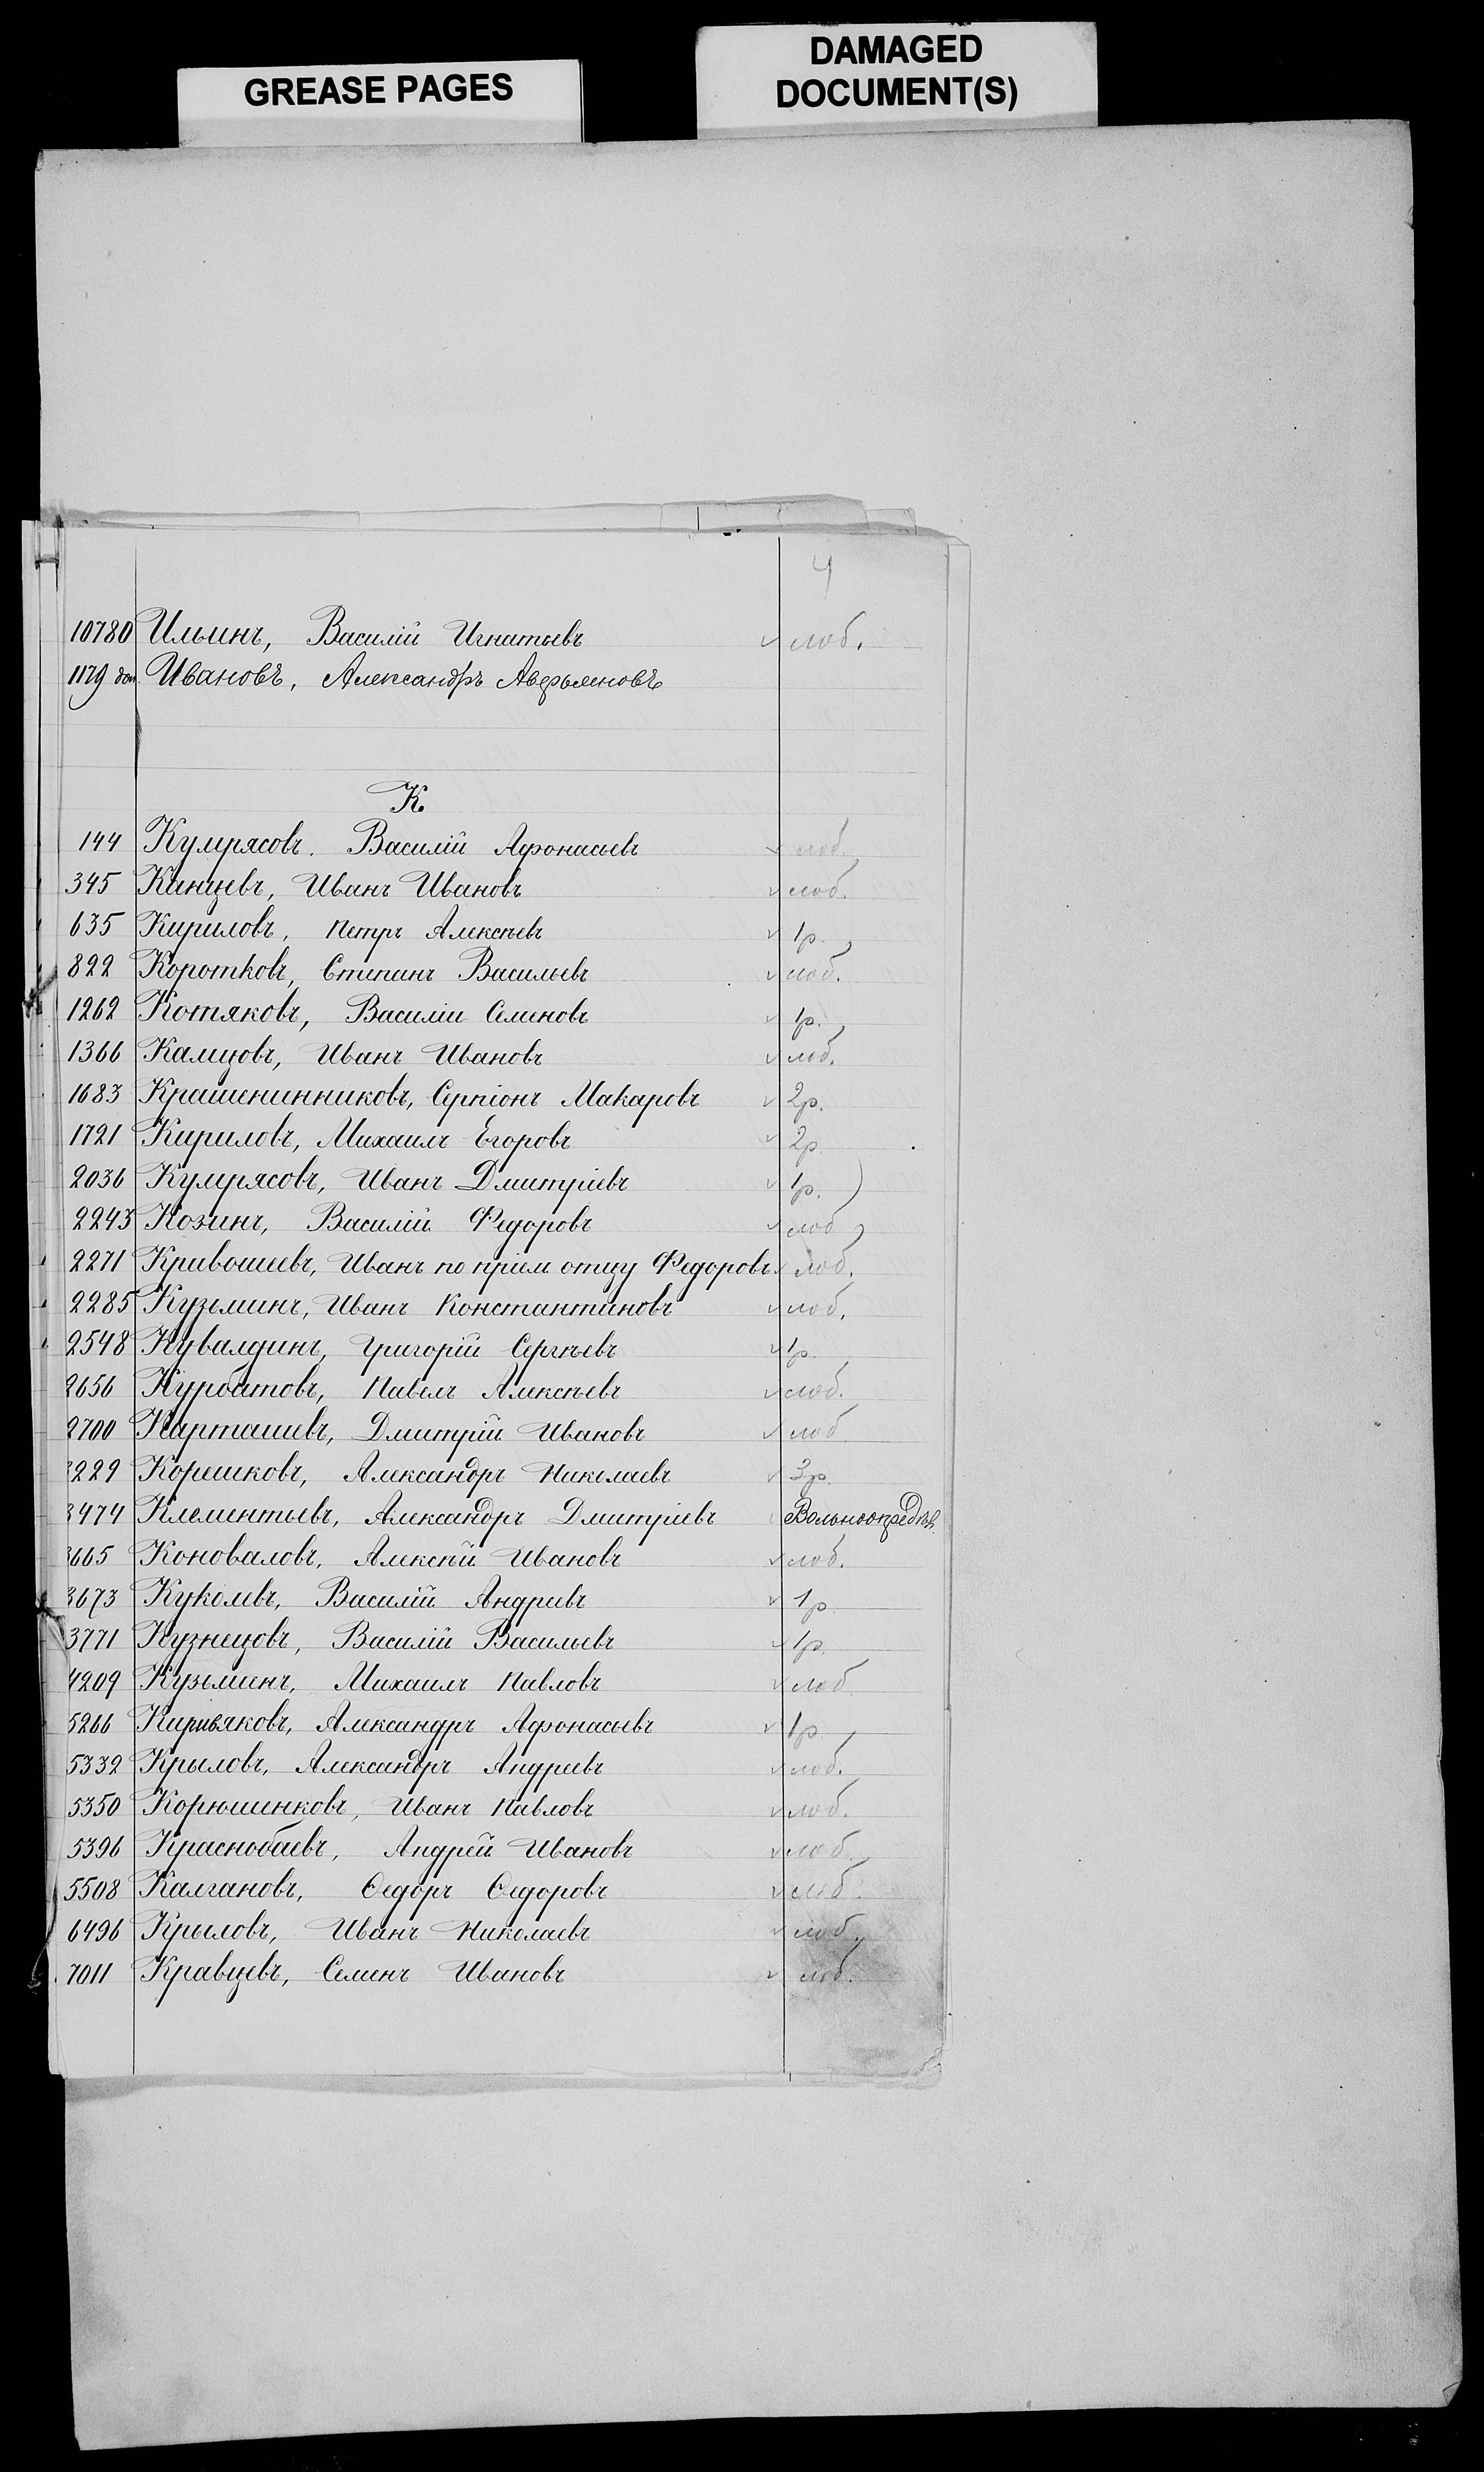 GREASE PAGES
DAMAGED
DOCUMENT(S)
4
10780 Ильинъ, Василій Игнатьевъ лоб.
1179 доп. Ивановъ, Александръ Аверьяновъ
К.
144 Кулрясовъ. Василій Афонасьевъ лоб.
345 Канцевъ, Иванъ Ивановъ лоб.
635 Кириловъ, Петръ Алексѣевъ 1р.
822 Коротковъ, Степанъ Васильевъ лоб.
1262 Котяковъ, Василій Семеновъ 1р.
1366 Камцовъ, Иванъ Ивановъ лоб.
1683 Крашенинниковъ, Серпіонъ Макаровъ 2р.
1721 Кириловъ, Михаилъ Егоровъ 2р
2036 Кулрясовъ, Иванъ Дмитріевъ 1р.
2243 Козинъ, Василій Федоровъ лоб
2271 Кривошеевъ, Иванъ по пріем отцу Федоровъ лоб.
2285 Кузьминъ, Иванъ Константиновъ лоб.
2548 Кувалдинъ, Григорій Сергѣевъ 1р.
2656 Курбатовъ, Павелъ Алексѣевъ лоб.
2700 Карташевъ, Дмитрій Ивановъ лоб
3229 Корешковъ, Александръ Николаевъ 3р.
3474 Клементьевъ, Александръ Дмитріевъ Вольноопредѣл.
3665 Коноваловъ, Алексѣй Ивановъ лоб.
3673 Куколевъ, Василій Андреевъ 1р
3771 Кузнецовъ, Василій Васильевъ 1р.
4209 Кузьминъ, Михаилъ Павловъ лоб
5266 Киривяковъ, Александръ Афонасьевъ 1р
5332 Крыловъ, Александръ Андреевъ лоб.
5350 Корюшенковъ, Иванъ Павловъ лоб.
5396 Краснобаевъ, Андрей Ивановъ лоб.
5508 Калгановъ, Ѳедоръ Ѳедоровъ лоб.
6496 Крыловъ, Иванъ Николаевъ лоб.
7011 Кравцевъ, Семенъ Ивановъ лоб.